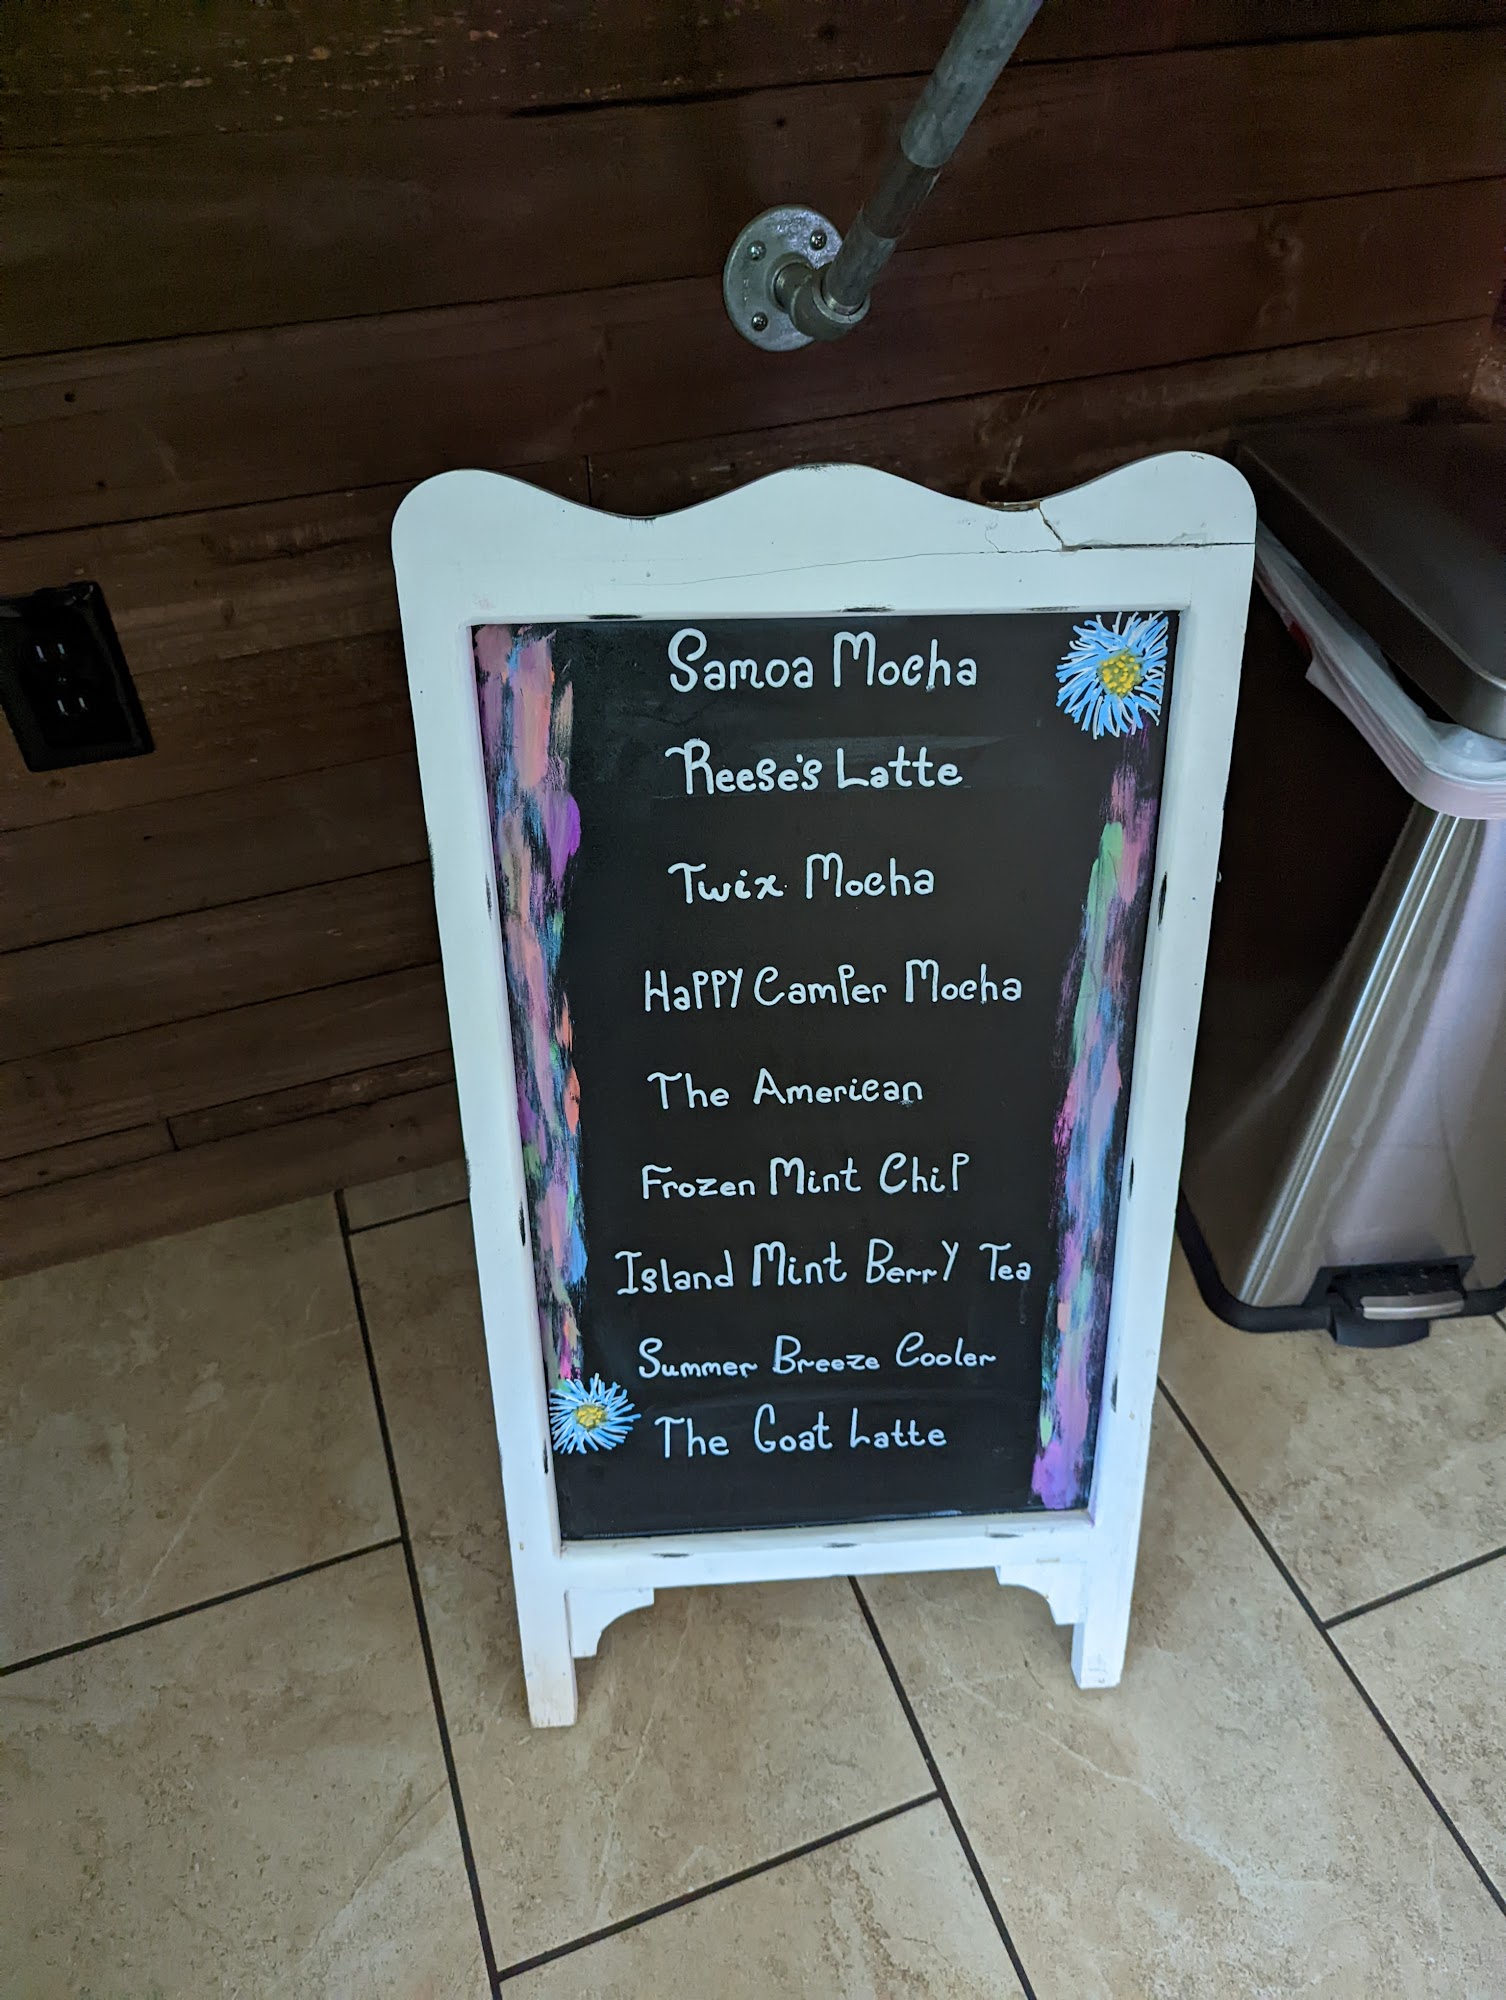 Samoa Mocha
Reese's Latte
Twix Mocha
Happy Camper Mocha
The American
Frozen Mint Chip
Island Mint Berry Tea
Summer Breeze Cooler
The Goat Latte